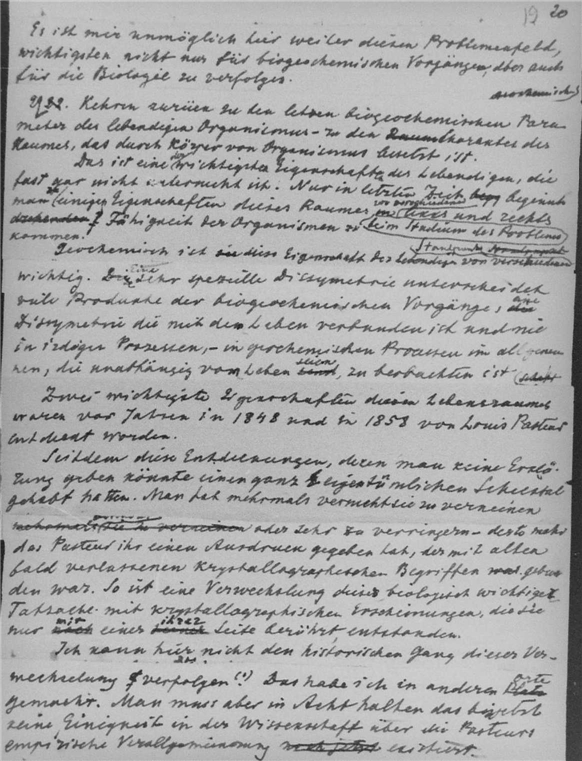 19 20
Es ist mir unmöglich hier weiter diesen Problemenfeld,
wichtigsten nicht nur für biogeochemischen Vorgängen, aber auch
für die Biologie zu verfolgen.
geochemischen
Kehren zurück zu den letzen biogeochemischen Para-
meter des lebendigen Organismus – zu den Charakter des
Raumes, das durch Körper von Organismus besetzt ist.
Das ist eine der wichtigsten Eigenschaften des Lebendigen, die
fast gar nicht ist. Nur in letzten Zeit begonnen
man einigen Eigenschaften dieses Raumes von verschiedenen links und rechts
Fähigkeit der Organismen zu beim Studium des Problems
kommen.
Geochemisch ist diese Eigenschaft des Lebendigen von verschiedenen Standpunkt
wichtig. Eine sehr spezielle Dissymetrie unterscheidet
viele Produkte der biogeochemischen Vorgänge, eine
Dissymetrie die mit dem Leben verbunden ist und nie
in irdigen Prozessen, – in geochemischen Prozessen im allgemei-
nen, die unabhängig vom Leben sein, zu beobachten ist
Zwei wichtigste Eigenschaften diesen Lebensraumes
waren vor Jahren in 1848 und in 1853 von Louis Pasteur
entdeckt worden.
Seitdem diese Entdeckungen, deren man keine Erklä-
rung geben könnte einen ganz eigentümlichen Schicksal
gehabt hatten. Man hat mehrmals versucht sie zu verneinen
oder sehr zu verringern – desto mehr
das Pasteur ihr einen Ausdruck gegeben hat, der mit alten
bald verlassenen krystallographischen Begriffen war gebun-
den war. So ist eine Verwechslung dieser biologisch wichtigen
Tatsache mit krystallographischen Erscheinungen, die sie
nur mit einer ihrer Seite berührt entstanden.
Ich kann hier nicht den historischen Gang dieser Ver-
wechselung verfolgen (¹) Das habe ich in anderen Orte
gemacht. Man muss aber in Acht halten das bis jetzt
keine Einigkeit in der Wissenschaft über die Pasteurs
empirische Verallgemeinerung nach jetzt existiert.